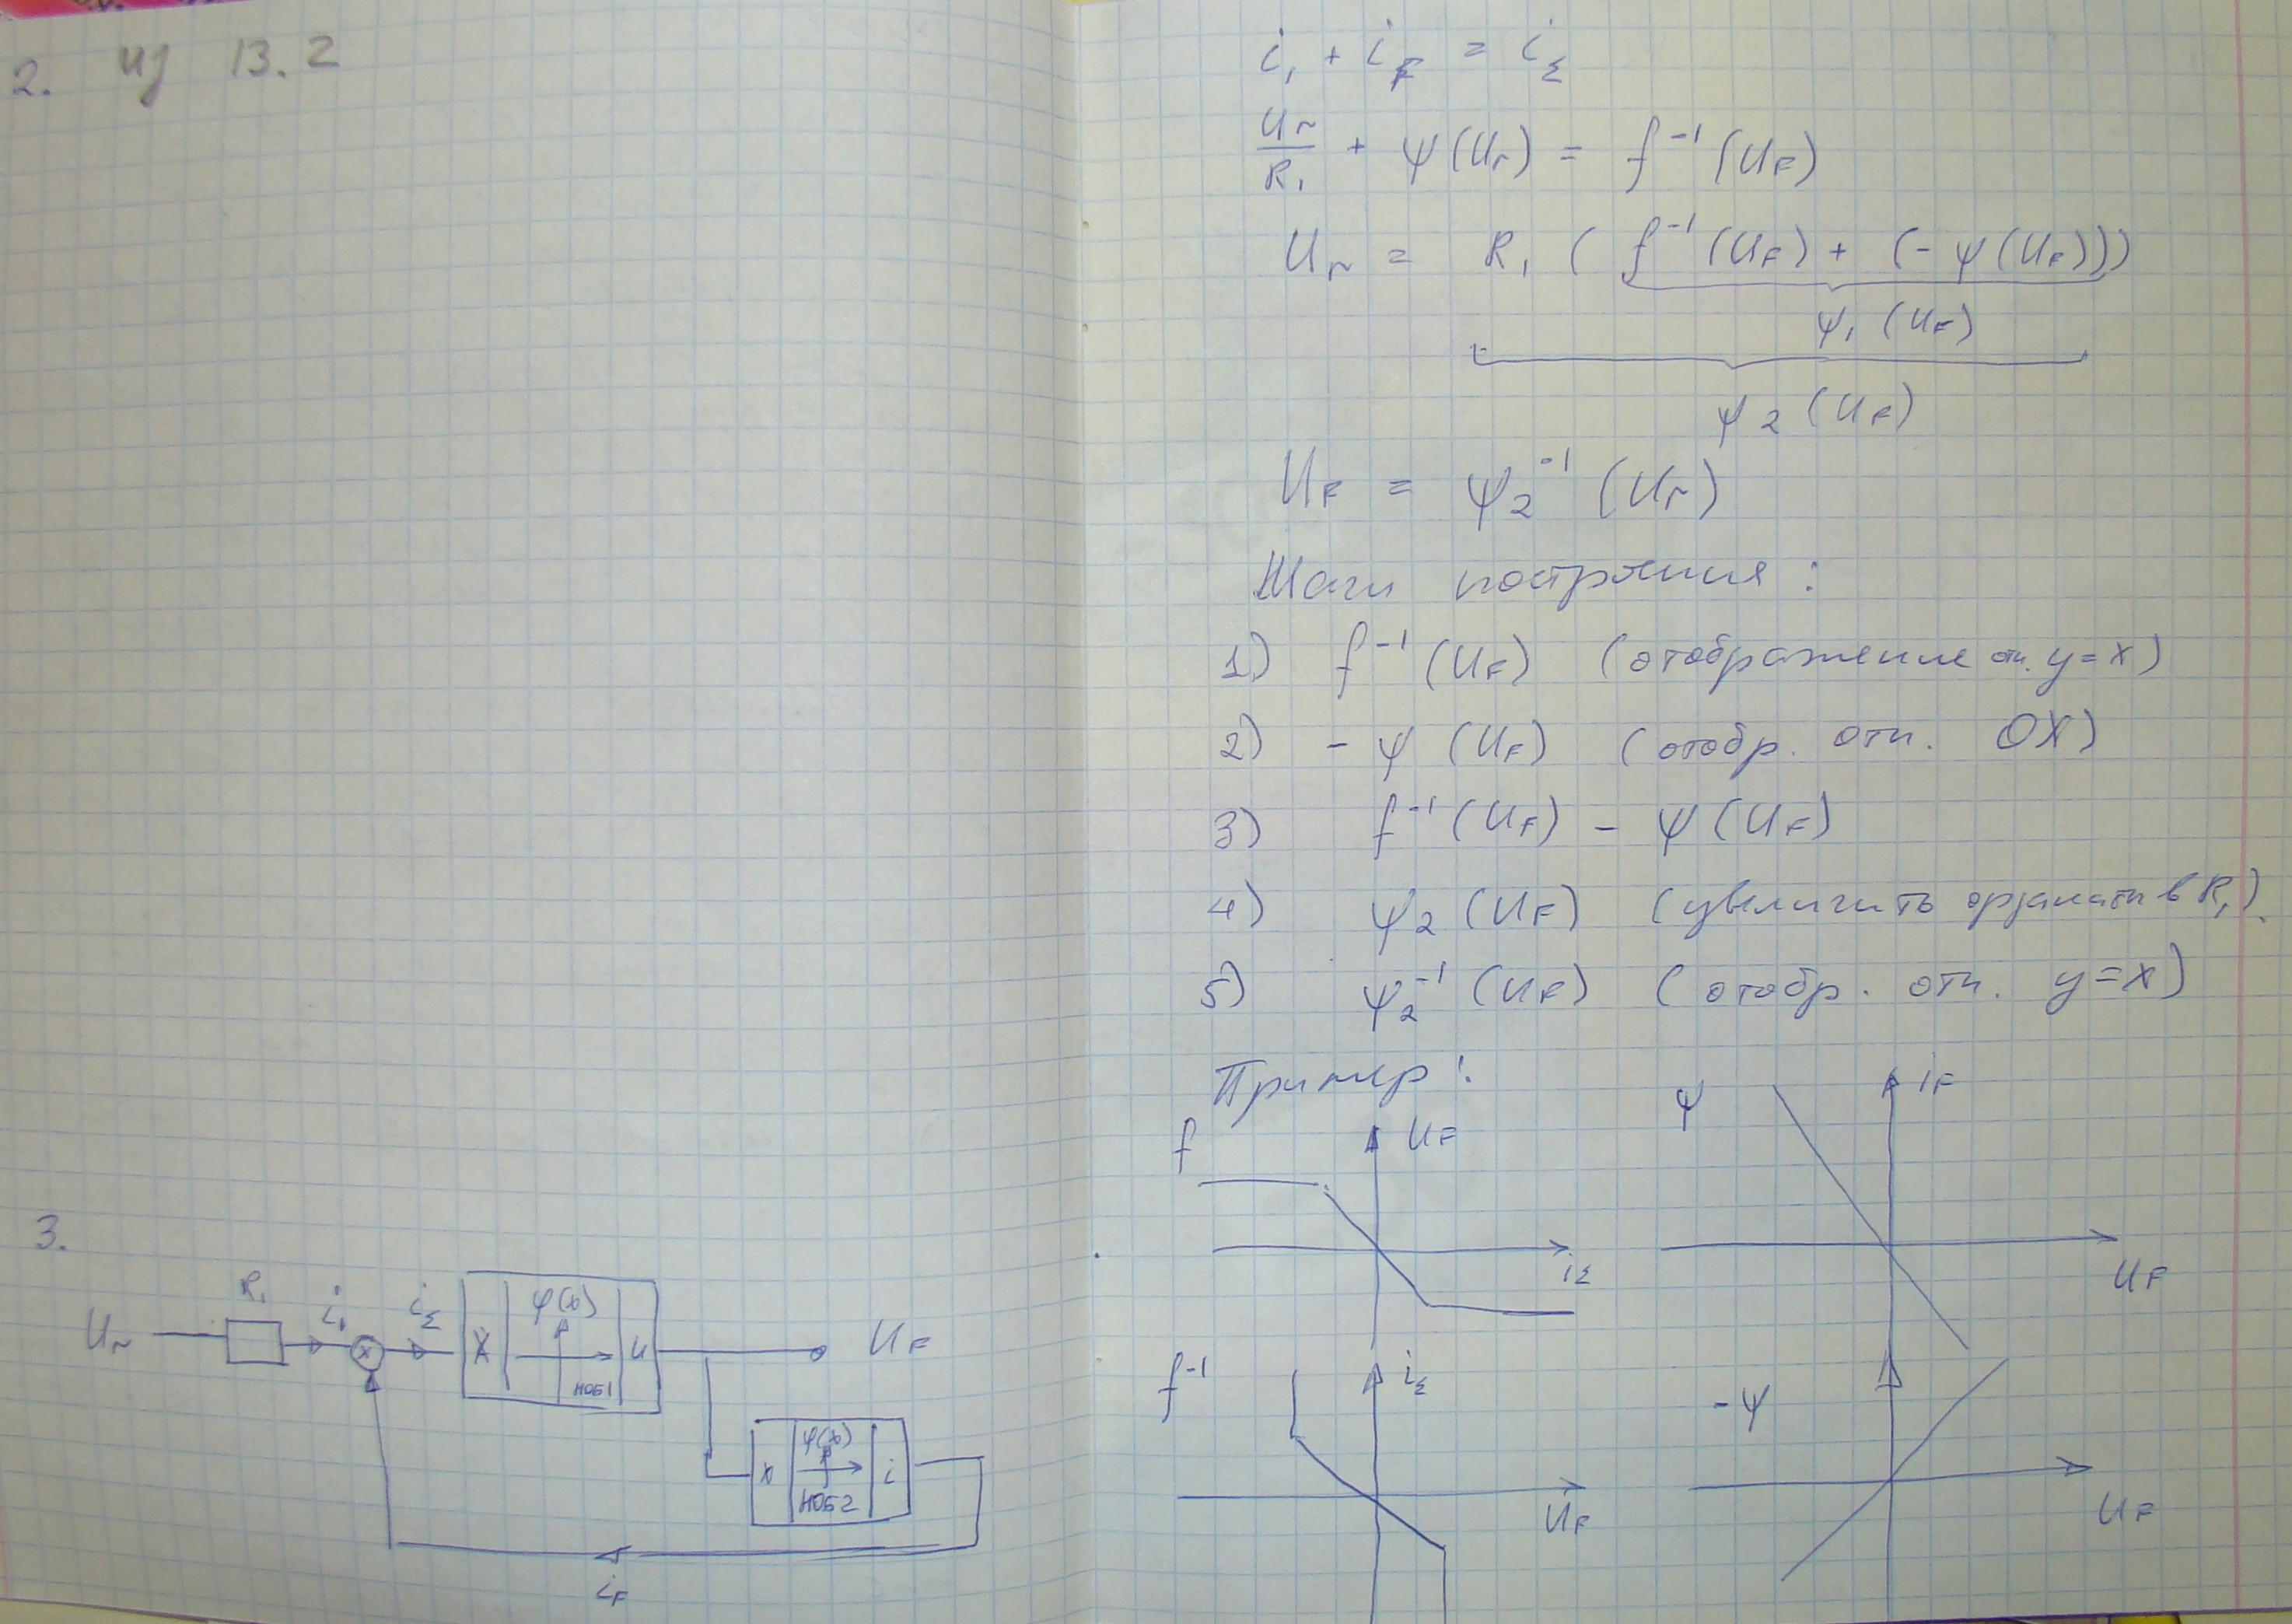 2. из 13.2
3.
R₁
Uг i₁ i_Σ
x φ(x) u
НОБ1
U_F
x φ(x) i
НОБ2
i_F
i₁ + i_F = i_Σ
Uг/R₁ + ψ(Uг) = f⁻¹(U_F)
Uг = R₁ (f⁻¹(U_F) + (-ψ(U_F)))
ψ₁(U_F)
ψ₂(U_F)
U_F = ψ₂⁻¹(Uг)
Шаги построения:
1) f⁻¹(U_F) (отображение отн. y=x)
2) -ψ(U_F) (отобр. отн. OX)
3) f⁻¹(U_F) - ψ(U_F)
4) ψ₂(U_F) (увеличить ординаты в R₁).
5) ψ₂⁻¹(U_F) (отобр. отн. y=x)
Пример:
f U_F
i_Σ
ψ i_F
U_F
f⁻¹ i_Σ
U_F
-ψ
U_F